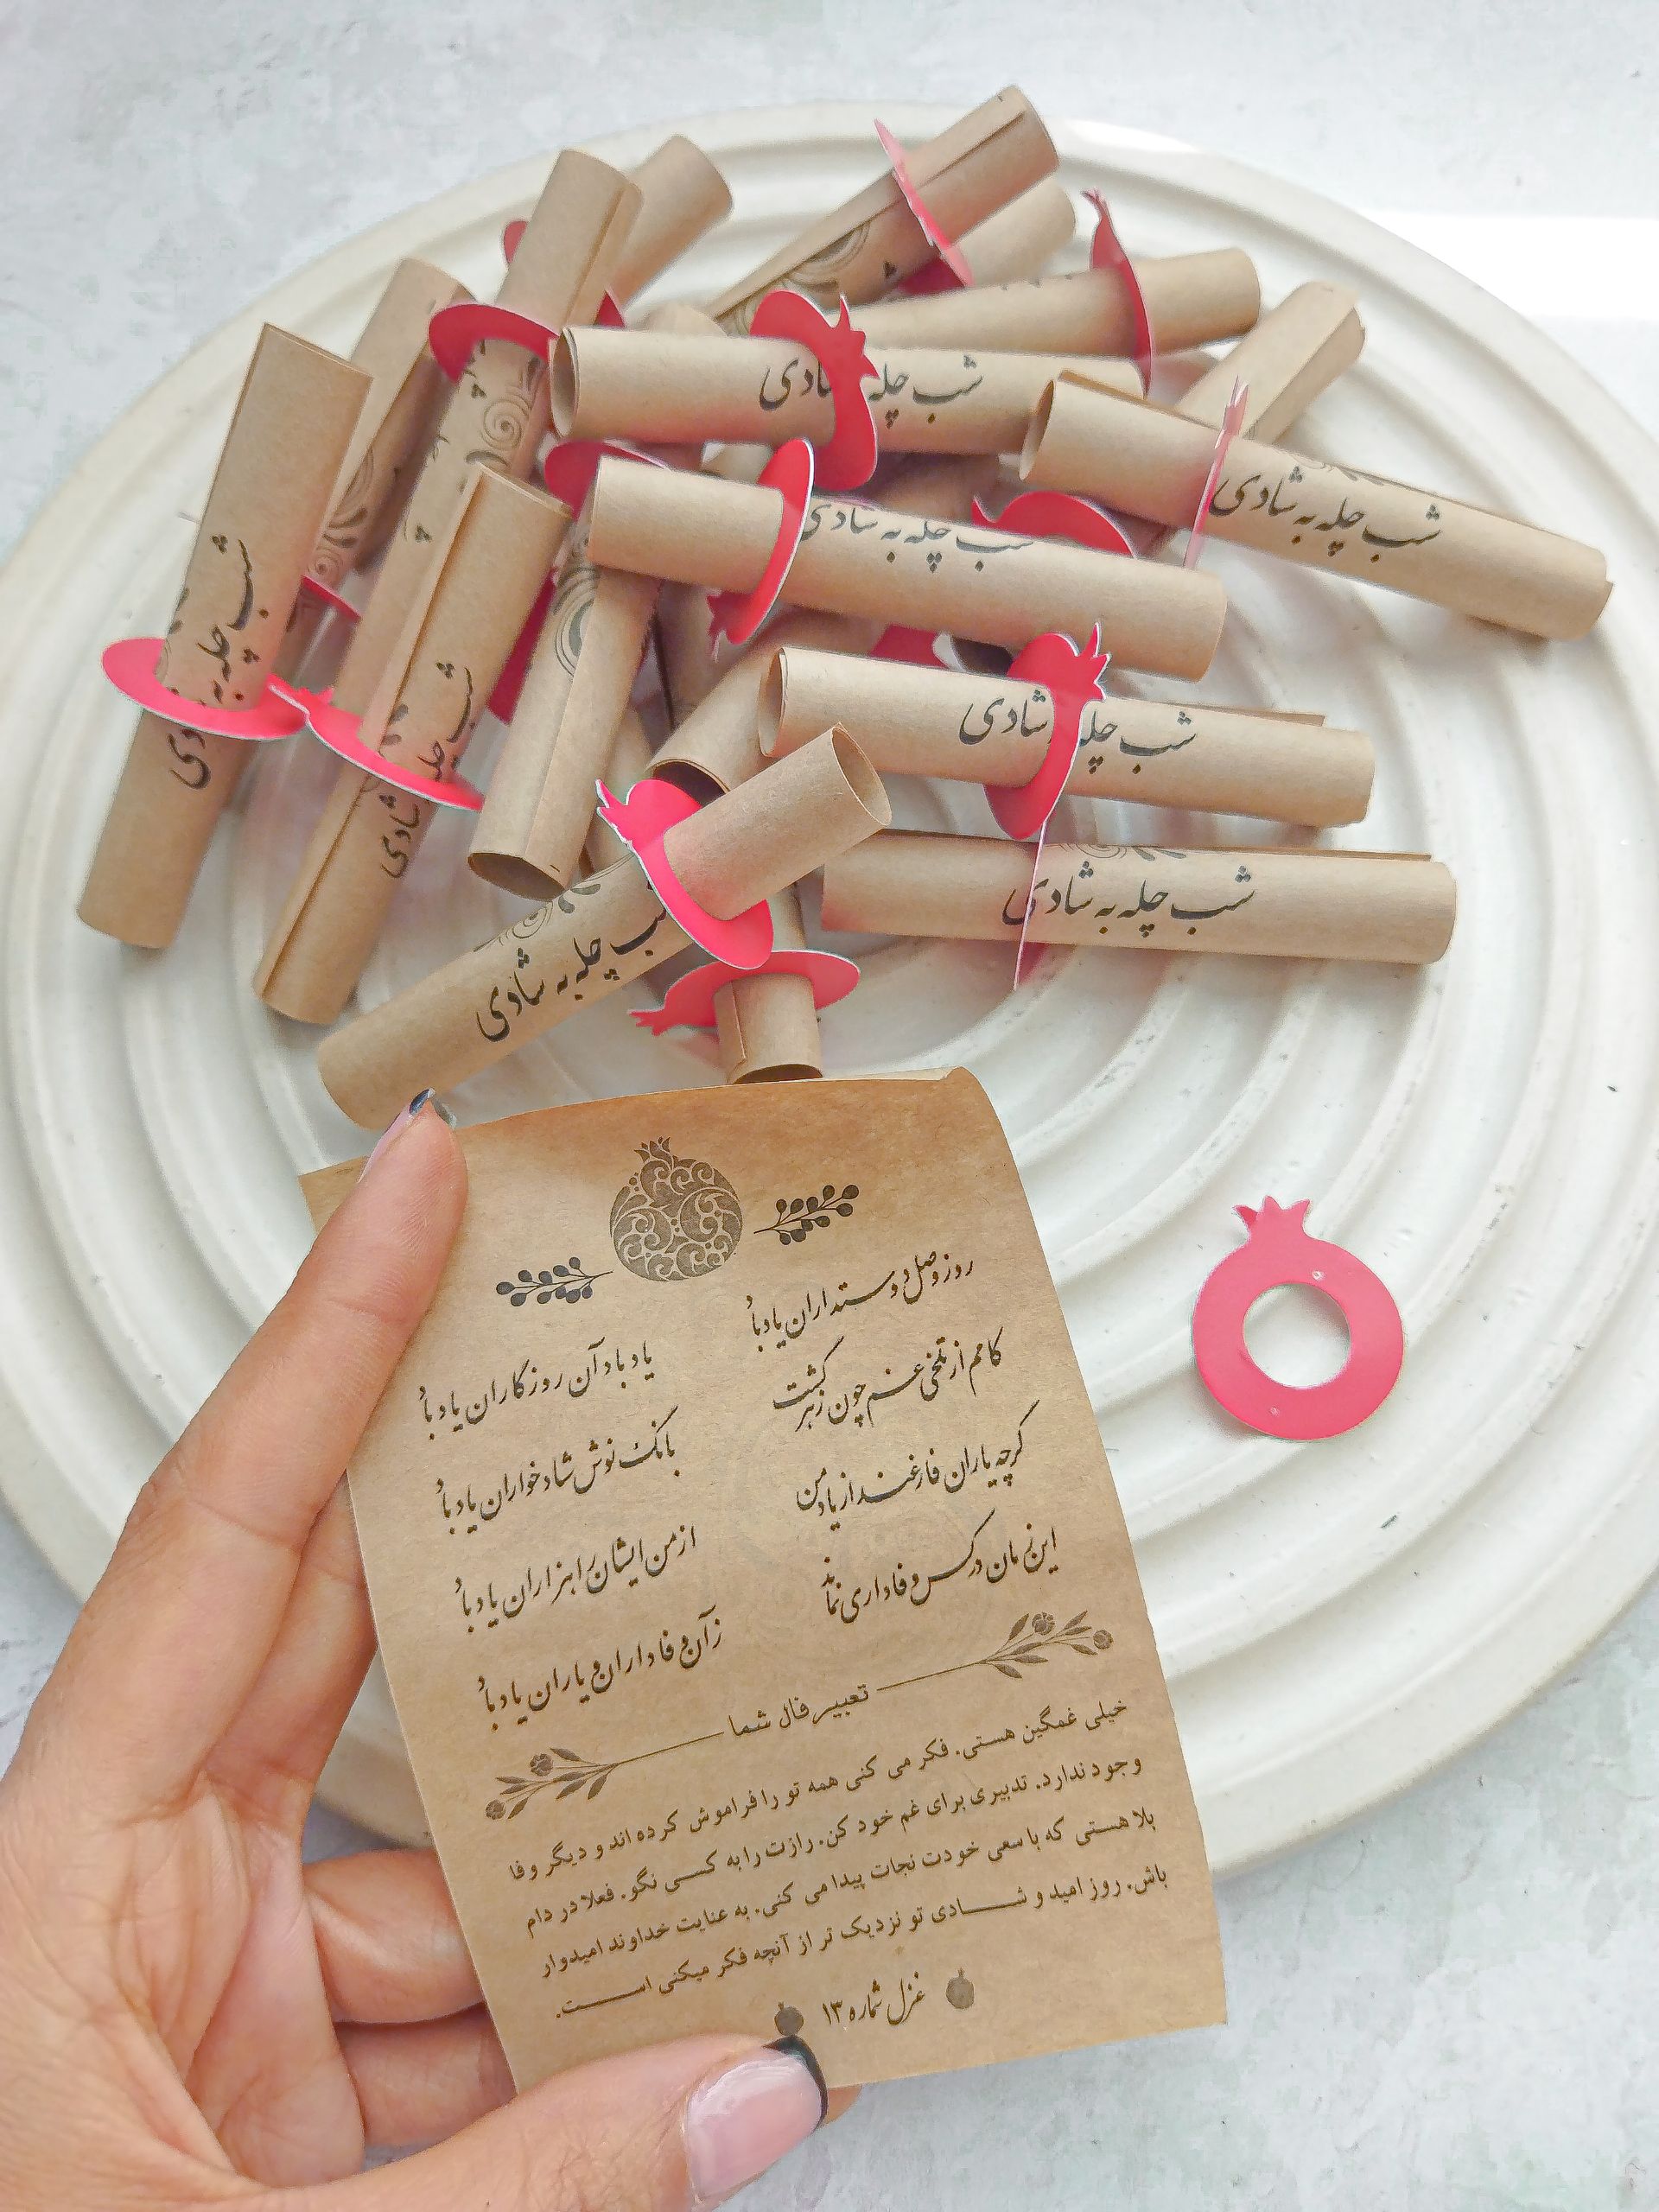 شب چله به شادی
شب چله به شادی
شب چله به شادی
شب چله به شادی
شب چله به شادی
شب چله به شادی
شب چله به شادی
شب چله به شادی
روز وصل دوستداران یاد باد
یاد باد آن روزگاران یاد باد
کامم از تلخی غم چون زهر گشت
بانگ نوش شادخواران یاد باد
گرچه یاران فارغند از یاد من
از من ایشان را هزاران یاد باد
این زمان در کس وفاداری نماند
زآن وفاداران و یاران یاد باد
تعبیر فال شما
خیلی غمگین هستی. فکر می کنی همه تو را فراموش کرده اند و دیگر وفا
وجود ندارد. تدبیری برای غم خود کن. رازت را به کسی نگو. فعلا در دام
بلا هستی که با سعی خودت نجات پیدا می کنی. به عنایت خداوند امیدوار
باش. روز امید و شادی تو نزدیک تر از آنچه فکر میکنی است.
غزل شماره ۱۳